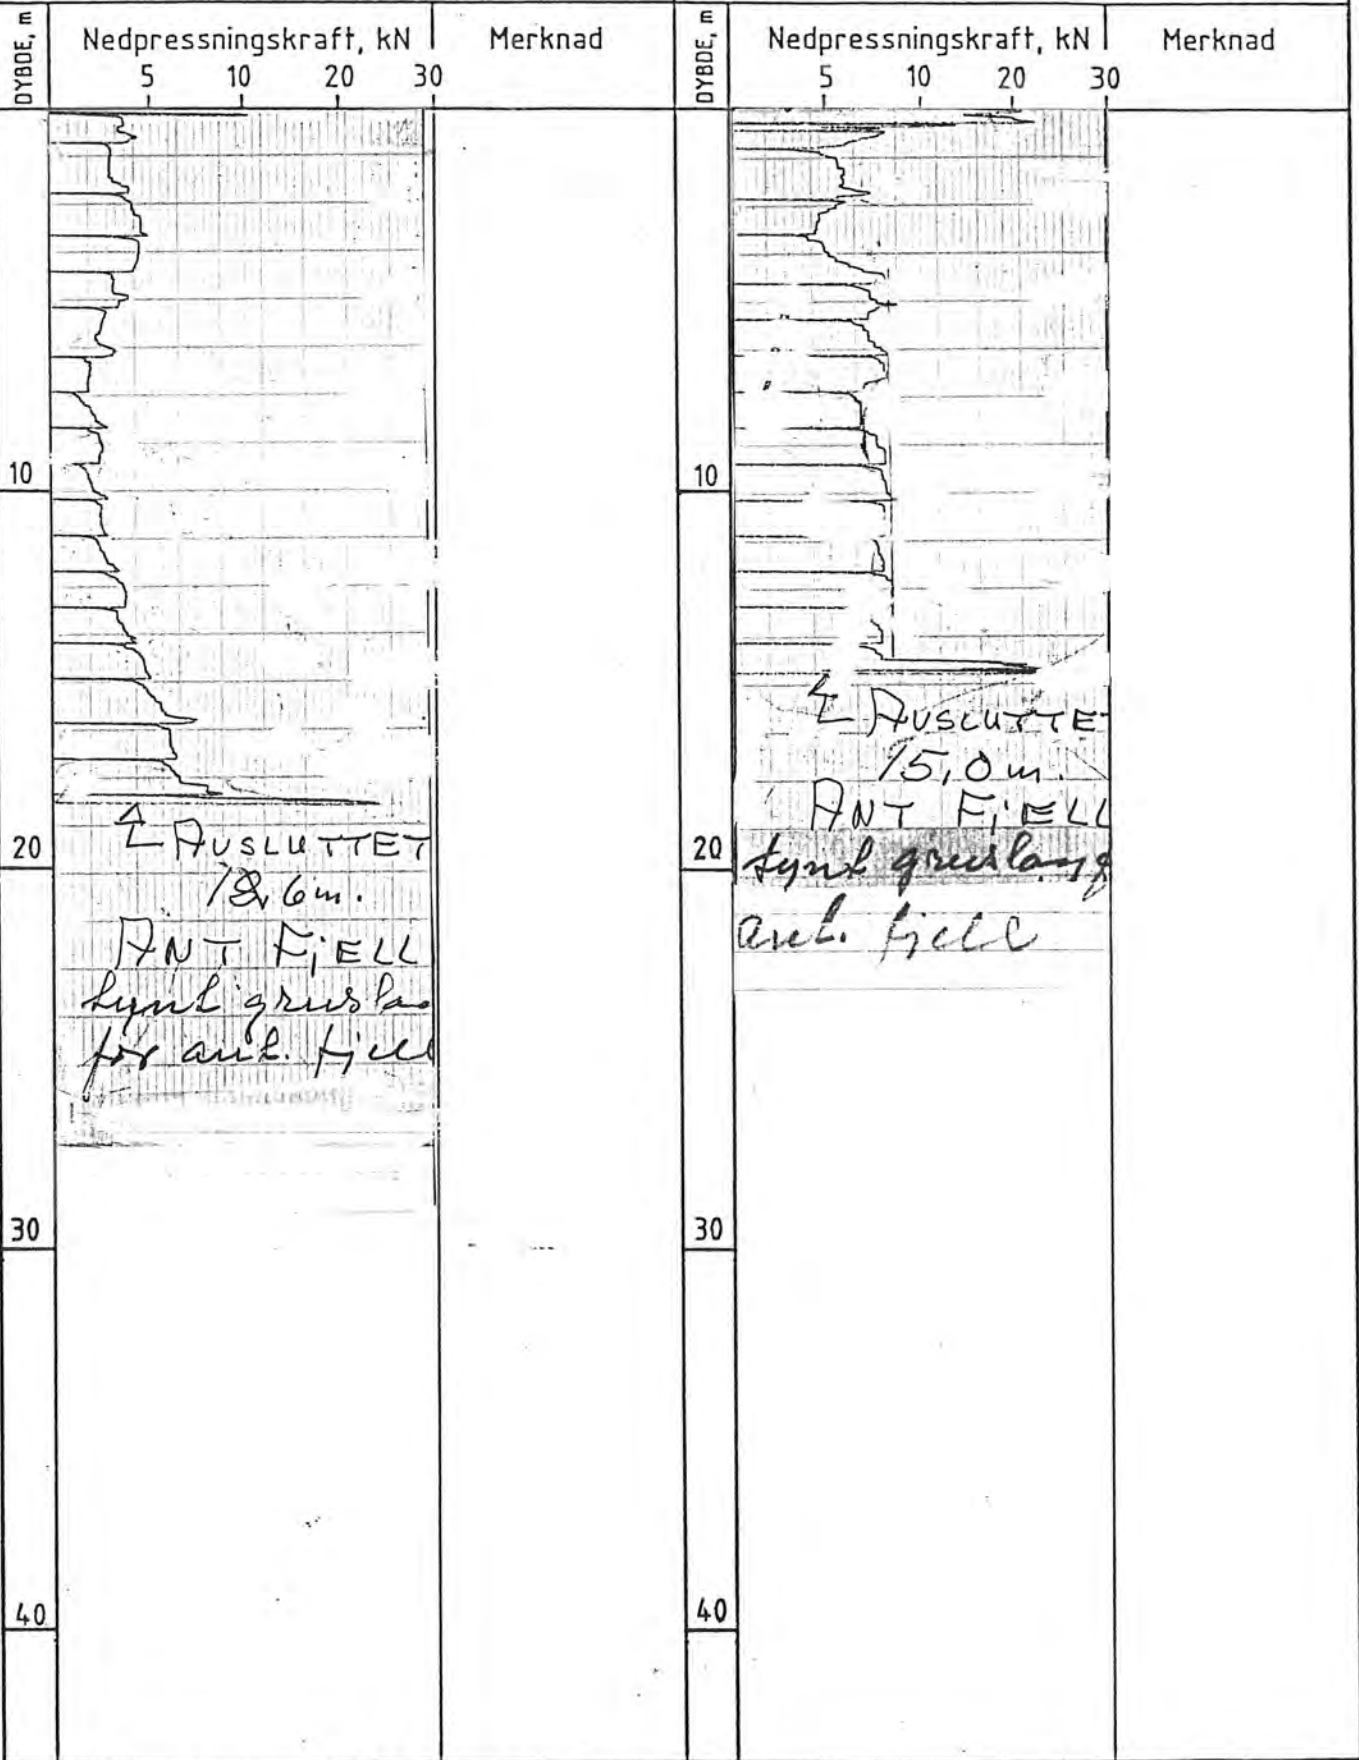 DYBDE, m
Nedpressningskraft, kN
Merknad
5 10 20 30
10
20
30
40
AVSLUTTET
18,6 m.
ANT FJELL
tynt gruslag
før ant. fjell
DYBDE, m
Nedpressningskraft, kN
Merknad
5 10 20 30
10
20
30
40
AVSLUTTET
15,0 m.
ANT FJELL
tynt gruslag
ant. fjell